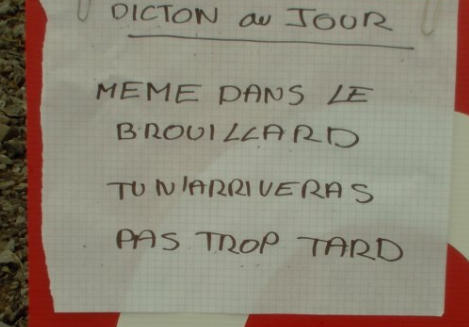 DICTON au JOUR
MEME DANS LE
BROUILLARD
TU N'ARRIVERAS
PAS TROP TARD